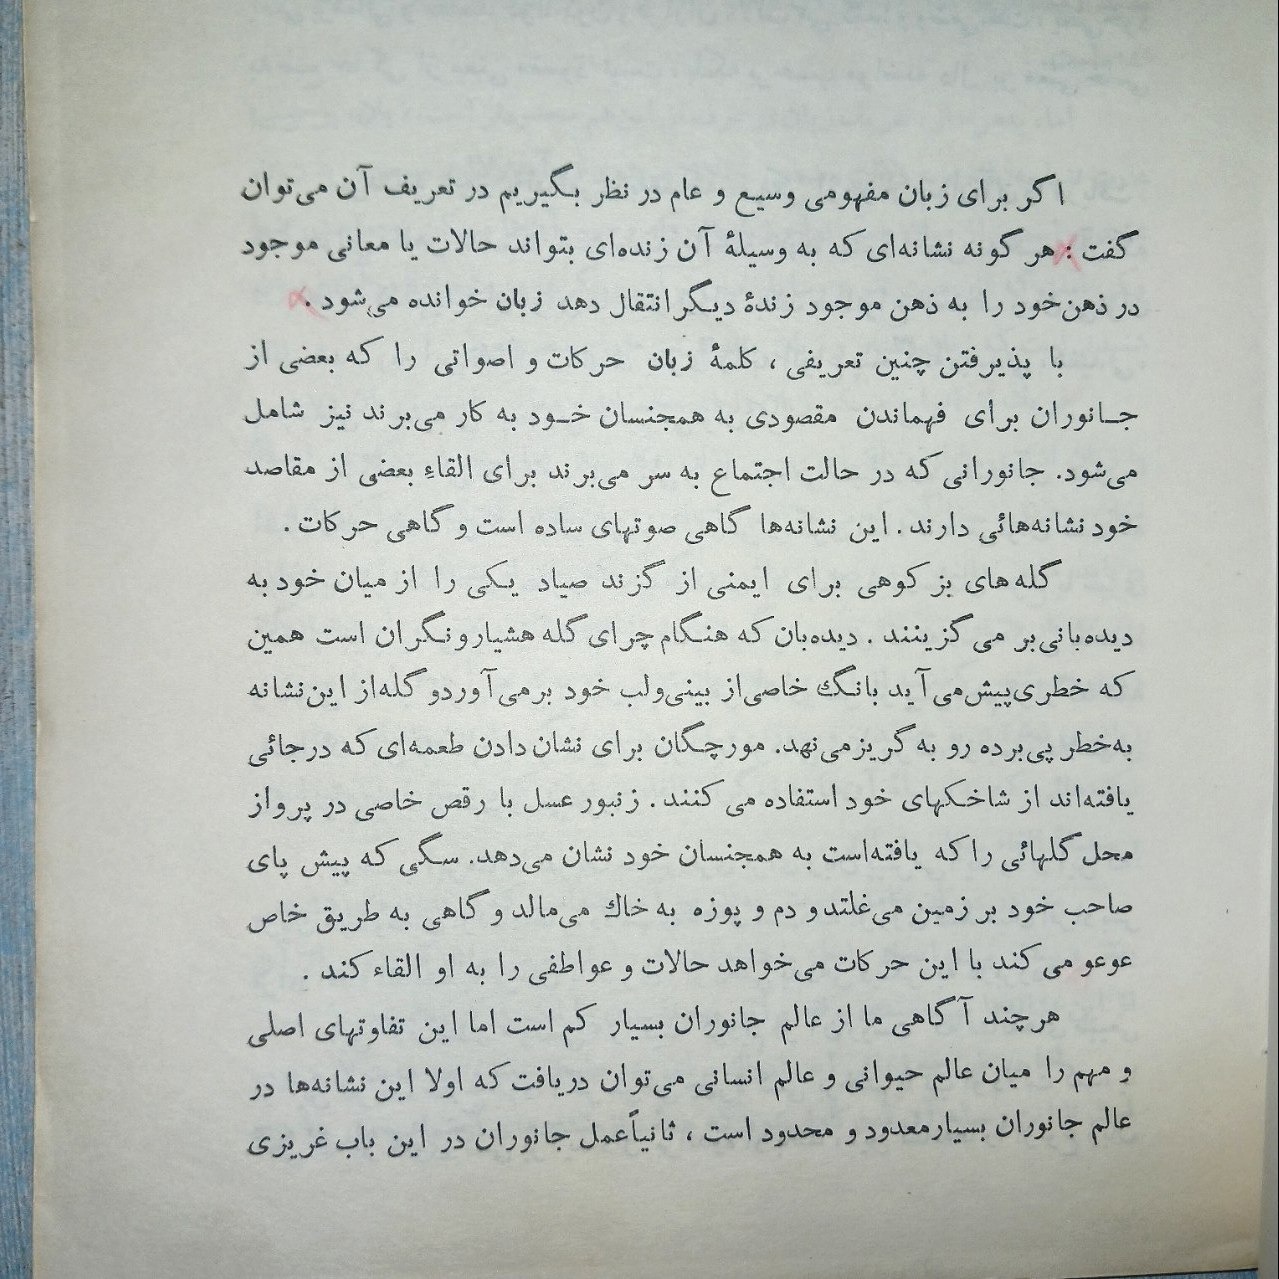 اگر برای زبان مفهومی وسیع و عام در نظر بگیریم در تعریف آن می‌توان
گفت : هر گونه نشانه‌ای که به وسیلهٔ آن زنده‌ای بتواند حالات یا معانی موجود
در ذهن خود را به ذهن موجود زندهٔ دیگر انتقال دهد زبان خوانده می‌شود .
با پذیرفتن چنین تعریفی ، کلمهٔ زبان حرکات و اصواتی را که بعضی از
جانوران برای فهماندن مقصودی به همجنسان خود به کار می‌برند نیز شامل
می‌شود. جانورانی که در حالت اجتماع به سر می‌برند برای القاءِ بعضی از مقاصد
خود نشانه‌هائی دارند . این نشانه‌ها گاهی صوتهای ساده است و گاهی حرکات .
گله‌های بز کوهی برای ایمنی از گزند صیاد یکی را از میان خود به
دیده‌بانی بر می گزینند . دیده‌بان که هنگام چرای گله هشیار و نگران است همین
که خطری پیش می‌آید بانگ خاصی از بینی و لب خود بر می‌آورد و گله از این نشانه
به خطر پی برده رو به گریز می‌نهد. مورچگان برای نشان دادن طعمه‌ای که در جائی
یافته‌اند از شاخکهای خود استفاده می کنند . زنبور عسل با رقص خاصی در پرواز
محل گلهائی را که یافته‌است به همجنسان خود نشان می‌دهد. سگی که پیش پای
صاحب خود بر زمین می‌غلتد و دم و پوزه به خاك می‌مالد و گاهی به طریق خاص
عوعو می کند با این حرکات می‌خواهد حالات و عواطفی را به او القاء کند .
هر چند آگاهی ما از عالم جانوران بسیار کم است اما این تفاوتهای اصلی
و مهم را میان عالم حیوانی و عالم انسانی می‌توان دریافت که اولا این نشانه‌ها در
عالم جانوران بسیار معدود و محدود است ، ثانیاً عمل جانوران در این باب غریزی